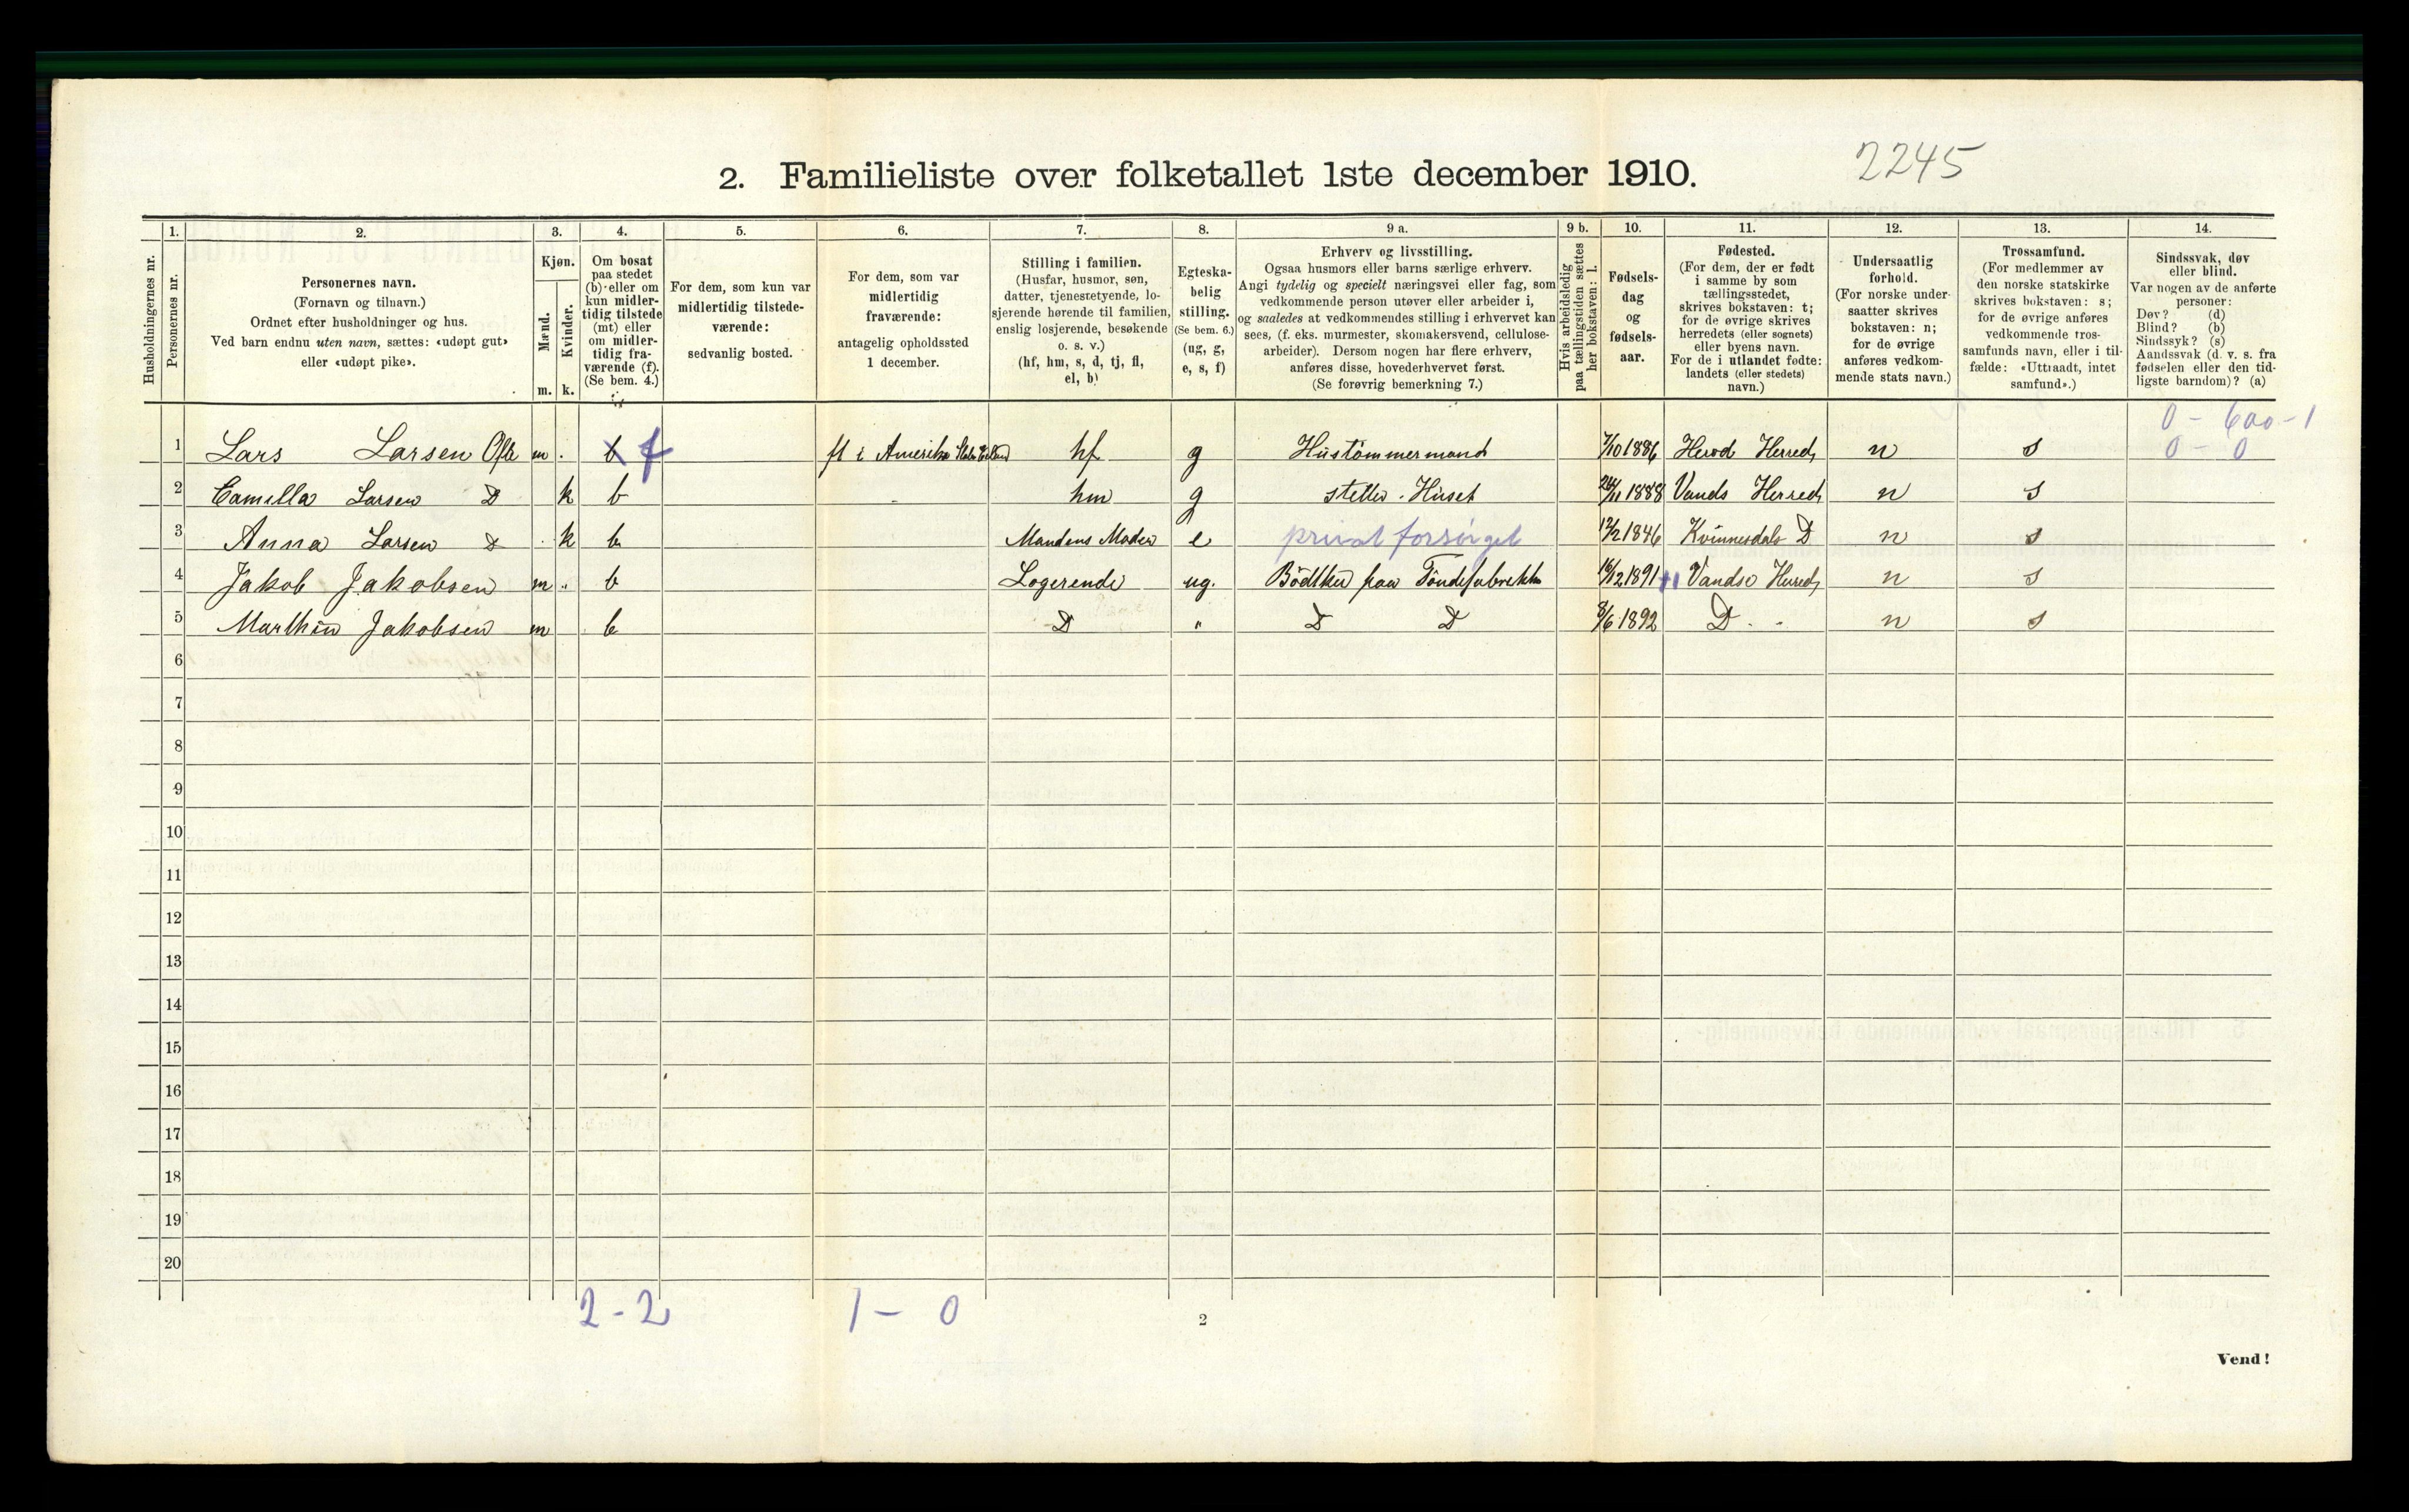 2245
2. Familieliste over folketallet 1ste december 1910.
Husholdningernes nr.
1. Personernes nr.
2. Personernes navn.
(Fornavn og tilnavn.)
Ordnet efter husholdninger og hus.
Ved barn endnu uten navn, sættes: «udøpt gut»
eller «udøpt pike».
3. Kjøn.
Mænd. m.
Kvinder. k.
4. Om bosat
paa stedet
(b) eller om
kun midler-
tidig tilstede
(mt) eller
om midler-
tidig fra-
værende (f).
(Se bem. 4.)
5. For dem, som kun var
midlertidig tilstede-
værende:
sedvanlig bosted.
6. For dem, som var
midlertidig
fraværende:
antagelig opholdssted
1 december.
7. Stilling i familien.
(Husfar, husmor, søn,
datter, tjenestetyende, lo-
sjerende hørende til familien,
enslig losjerende, besøkende
o. s. v.)
(hf, hm, s, d, tj, fl,
el, b)
8. Egteska-
belig
stilling.
(Se bem. 6.)
(ug, g,
e, s, f)
9 a. Erhverv og livsstilling.
Ogsaa husmors eller barns særlige erhverv.
Angi tydelig og specielt næringsvei eller fag, som
vedkommende person utøver eller arbeider i,
og saaledes at vedkommendes stilling i erhvervet kan
sees, (f. eks. murmester, skomakersvend, cellulose-
arbeider). Dersom nogen har flere erhverv,
anføres disse, hovederhvervet først.
(Se forøvrig bemerkning 7.)
9 b. Hvis arbeidsledig
paa tællingstiden sættes
her bokstaven: l.
10. Fødsels-
dag
og
fødsels-
aar.
11. Fødested.
(For dem, der er født
i samme by som
tællingsstedet,
skrives bokstaven: t;
for de øvrige skrives
herredets (eller sognets)
eller byens navn.
For de i utlandet fødte:
landets (eller stedets)
navn.)
12. Undersaatlig
forhold.
(For norske under-
saatter skrives
bokstaven: n;
for de øvrige
anføres vedkom-
mende stats navn.)
13. Trossamfund.
(For medlemmer av
den norske statskirke
skrives bokstaven: s;
for de øvrige anføres
vedkommende tros-
samfunds navn, eller i til-
fælde: «Uttraadt, intet
samfund».)
14. Sindssvak, døv
eller blind.
Var nogen av de anførte
personer:
Døv? (d)
Blind? (b)
Sindssyk? (s)
Aandssvak (d. v. s. fra
fødselen eller den tid-
ligste barndom)? (a)
0 - 600 - 1
1 Lars Larsen m b f i Amerika hf g Hustömmermand 7/10 1886 Herred n s 0 - 0
2 Camilla Larsen D k b hm g steller Huset 1888 Vands Herred n s
3 Anna Larsen D k b Mandens Moder e privat forsörget 12/2 1846 Kvinnesdals D n s
4 Jakob Jakobsen m b Logerende ug. Bödtker paa Töndefabrikken 16/12 1891 Vandsø Herred n s
5 Marthin Jakobsen m b D " D D 8/6 1892 D n s
6
7
8
9
10
11
12
13
14
15
16
17
18
19
20
2 - 2 1 - 0
2
Vend!